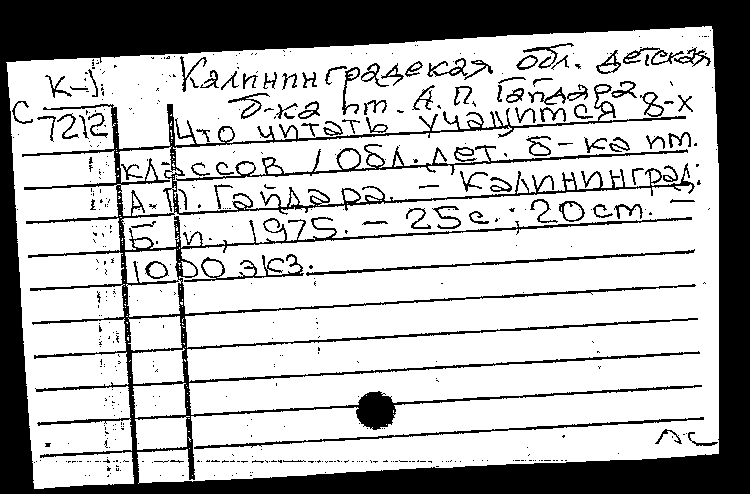 К-1
С 7212
Калининградская обл. детская
б-ка им. А.П. Гайдара.
Что читать учащимся 8-х
классов / Обл. дет. б-ка им.
А.П. Гайдара. – Калининград:
Б. и., 1975. – 25 с.; 20 см. –
1000 экз.